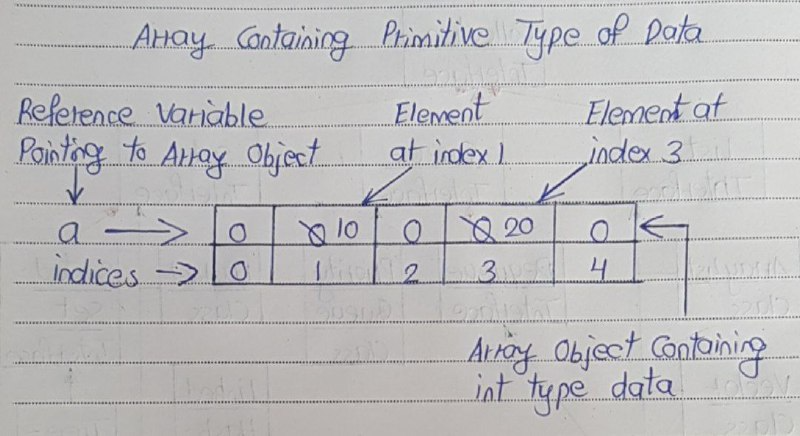 Array Containing Primitive Type of Data
Reference Variable
Pointing to Array Object
Element
at index 1
Element at
index 3
a → 0 0 10 0 0 20 0
indices → 0 1 2 3 4
Array Object Containing
int type data